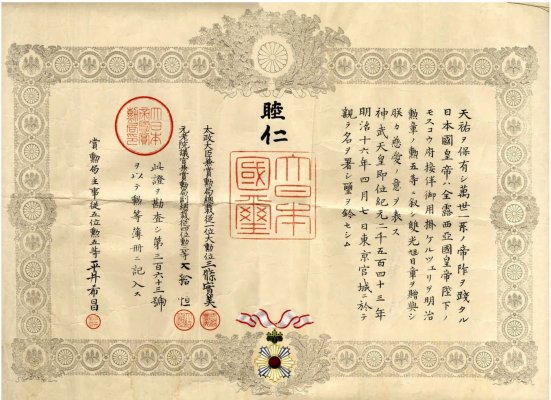 天祐ヲ保有シ萬世一系ノ帝祚ヲ踐タル
日本國皇帝ハ全露西亞國皇帝陛下ノ
モスコウ府接伴御用掛ケルツエリヲ明治
勲章ノ勲五等ニ叙シ雙光旭日章ヲ贈與シ
朕カ慈愛ノ意ヲ表ス
神武天皇即位紀元二千五百四十三年
明治十六年四月七日東京宮城ニ於テ
親ラ名ヲ署シ璽ヲ鈐セシム
睦仁
大日本國璽
太政大臣兼賞勲局總裁從一位大勲位三條實美
元老院議官兼賞勲局副總裁從四位勲二等大給恒
此證ヲ勘査シ第三百六十三號
ヲ以テ勲等簿冊ニ記入ス
賞勲局主事從五位勲五等平井希昌